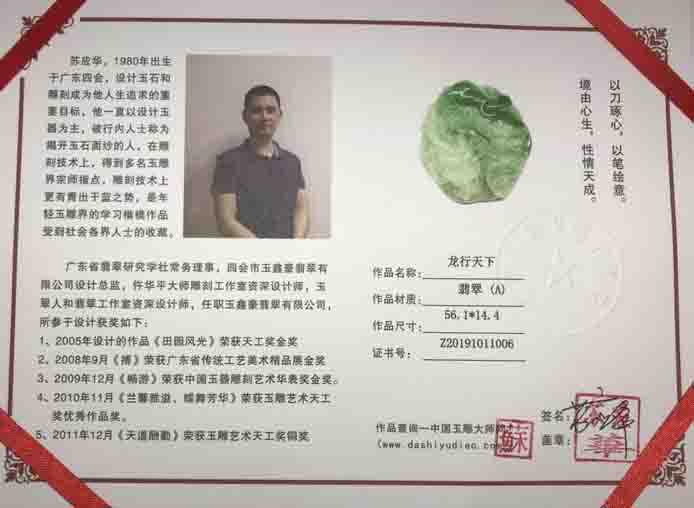 苏应华，1980年出生
于广东四会，设计玉石和
雕刻成为他人生追求的重
要目标，他一直以设计玉
器为主，被行内人士称为
揭开玉石面纱的人，在雕
刻技术上，得到多名玉雕
界宗师指点，雕刻技术上
更有青出于蓝之势，是年
轻玉雕界的学习楷模作品
受到社会各界人士的收藏。
以刀琢心，以笔绘意。
境由心生，性情天成。
广东省翡翠研究学社常务理事，四会市玉鑫豪翡翠有
限公司设计总监，怀华平大师雕刻工作室资深设计师，玉
翠人和翡翠工作室资深设计师，任职玉鑫豪翡翠有限公司，
所参于设计获奖如下：
1、2005年设计的作品《田园风光》荣获天工奖金奖
2、2008年9月《搏》荣获广东省传统工艺美术精品展金奖
3、2009年12月《畅游》荣获中国玉器雕刻艺术华表奖金奖。
4、2010年11月《兰馨雅溢、蝶舞芳华》荣获玉雕艺术天工
奖优秀作品奖。
5、2011年12月《天道酬勤》荣获玉雕艺术天工奖铜奖
作品名称：龙行天下
作品材质：翡翠（A）
作品尺寸：56.1*14.4
证书号：Z20191011006
作品查询—中国玉雕大师
(www.dashiyudiao.com)
签名：
盖章：
蘇
華